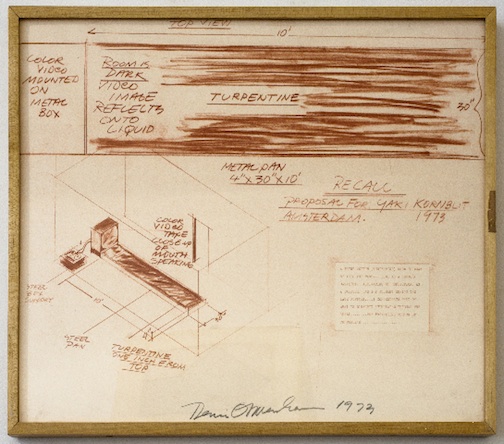 TOP VIEW
10'
COLOR
VIDEO
MOUNTED
ON
METAL
BOX
ROOM IS
DARK
VIDEO
IMAGE
REFLECTS
ONTO
LIQUID
TURPENTINE
30"
METAL PAN
4" X 30" X 10'
RECALL
PROPOSAL FOR YAKI KORNBLIT
AMSTERDAM. 1973
COLOR
VIDEO TAPE
CLOSE UP
OF
MOUTH
SPEAKING
STEEL
BOX
SUPPORT
10'
STEEL
PAN
4"
30"
TURPENTINE
ONE INCH FROM
TOP
Dennis Oppenheim 1973